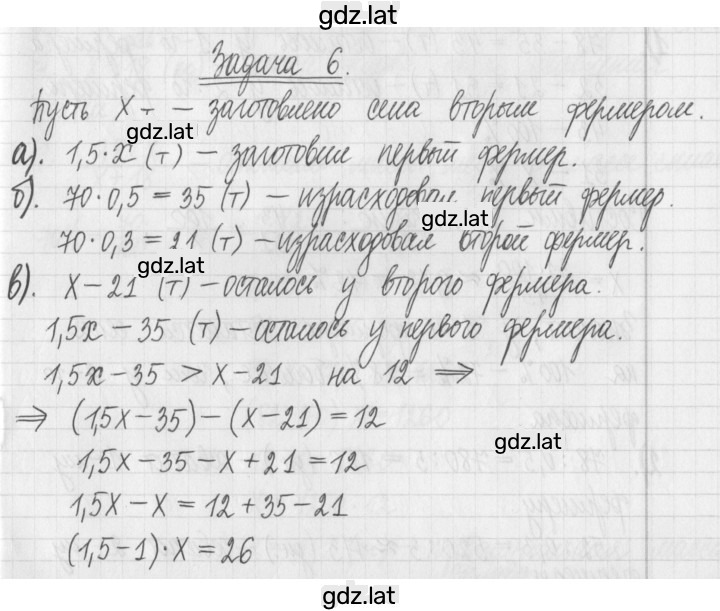 gdz.lat
Задача 6.
Пусть х т — заготовлено сена вторым фермером.
gdz.lat
а). 1,5·х (т) — заготовил первый фермер.
б). 70·0,5 = 35 (т) — израсходовал первый фермер.
gdz.lat
70·0,3 = 21 (т) — израсходовал второй фермер.
gdz.lat
в). х – 21 (т) – осталось у второго фермера.
1,5х – 35 (т) – осталось у первого фермера.
1,5х – 35 > х – 21 на 12 ⇒
⇒ (1,5х – 35) – (х – 21) = 12
gdz.lat
1,5х – 35 – х + 21 = 12
1,5х – х = 12 + 35 – 21
(1,5 – 1)·х = 26
gdz.lat